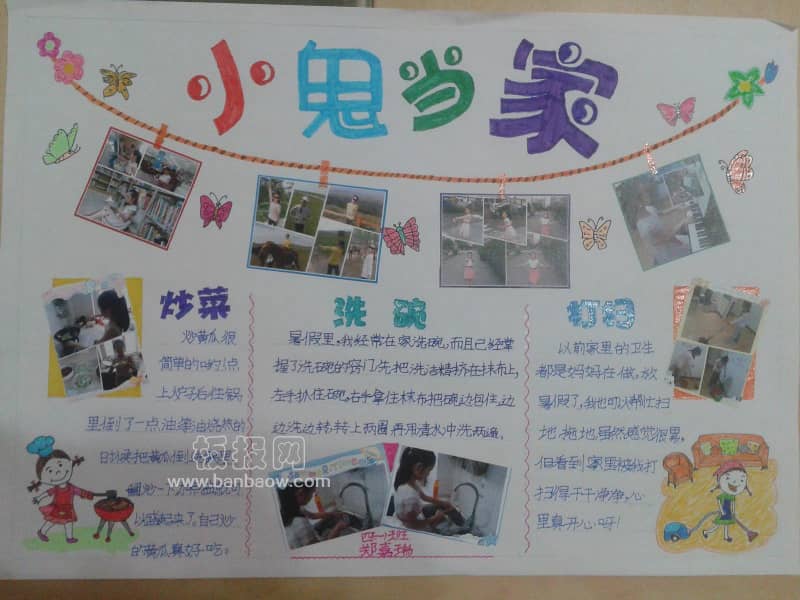 小鬼当家
炒菜
炒黄瓜很
简单的呦！点
上炉子后往锅
里倒了一点油，等油烧热的
时候把黄瓜倒
翻炒一
以盛起来了。自己炒
的黄瓜真好吃。
洗碗
暑假里，我经常在家洗碗，而且已经掌
握了洗碗的窍门，先把洗洁精挤在抹布上，
左手扒住碗，右手拿住抹布把碗边包住，边
边洗边转，转上两圈再用清水中洗两遍。
四一班
郑嘉
打扫
以前家里的卫生
都是妈妈在做，放
暑假了，我也可以帮忙扫
地、拖地，虽然感觉很累，
但看到家里被我打
扫得干干净净，心
里真开心呀！
板报网
www.banbaow.com